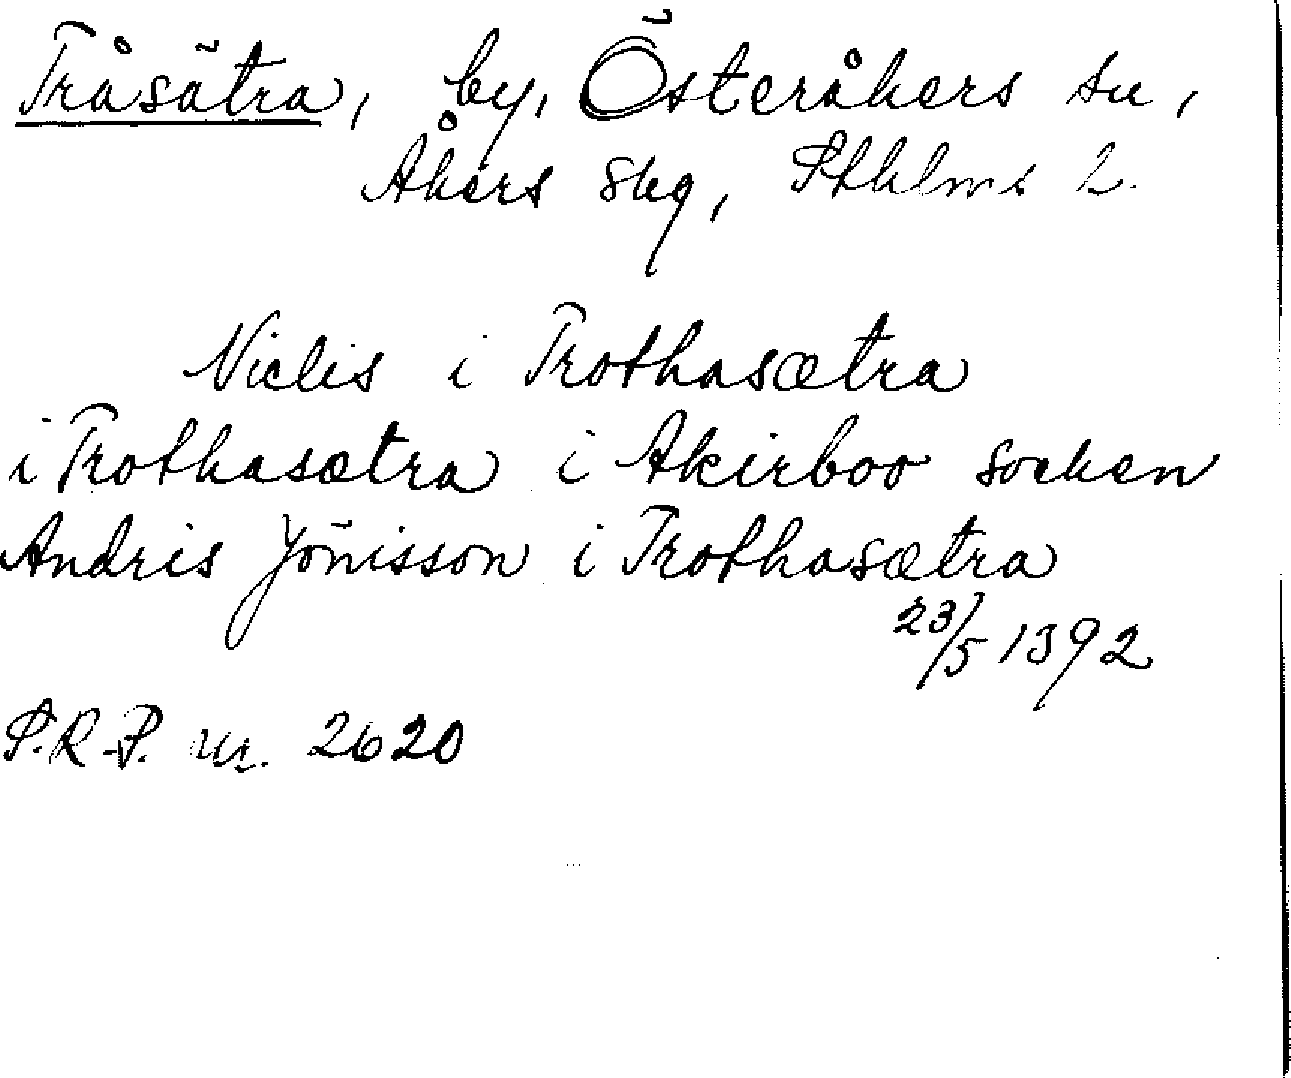 Tråsätra, by, Österåkers sn,
Åkers skg, Sthlms l.
Niclis i Trothasætra
i Trothasætra i Akirboo socken
Andris Jönisson i Trothasætra
23/5 1392
S.R.P. nr. 2620